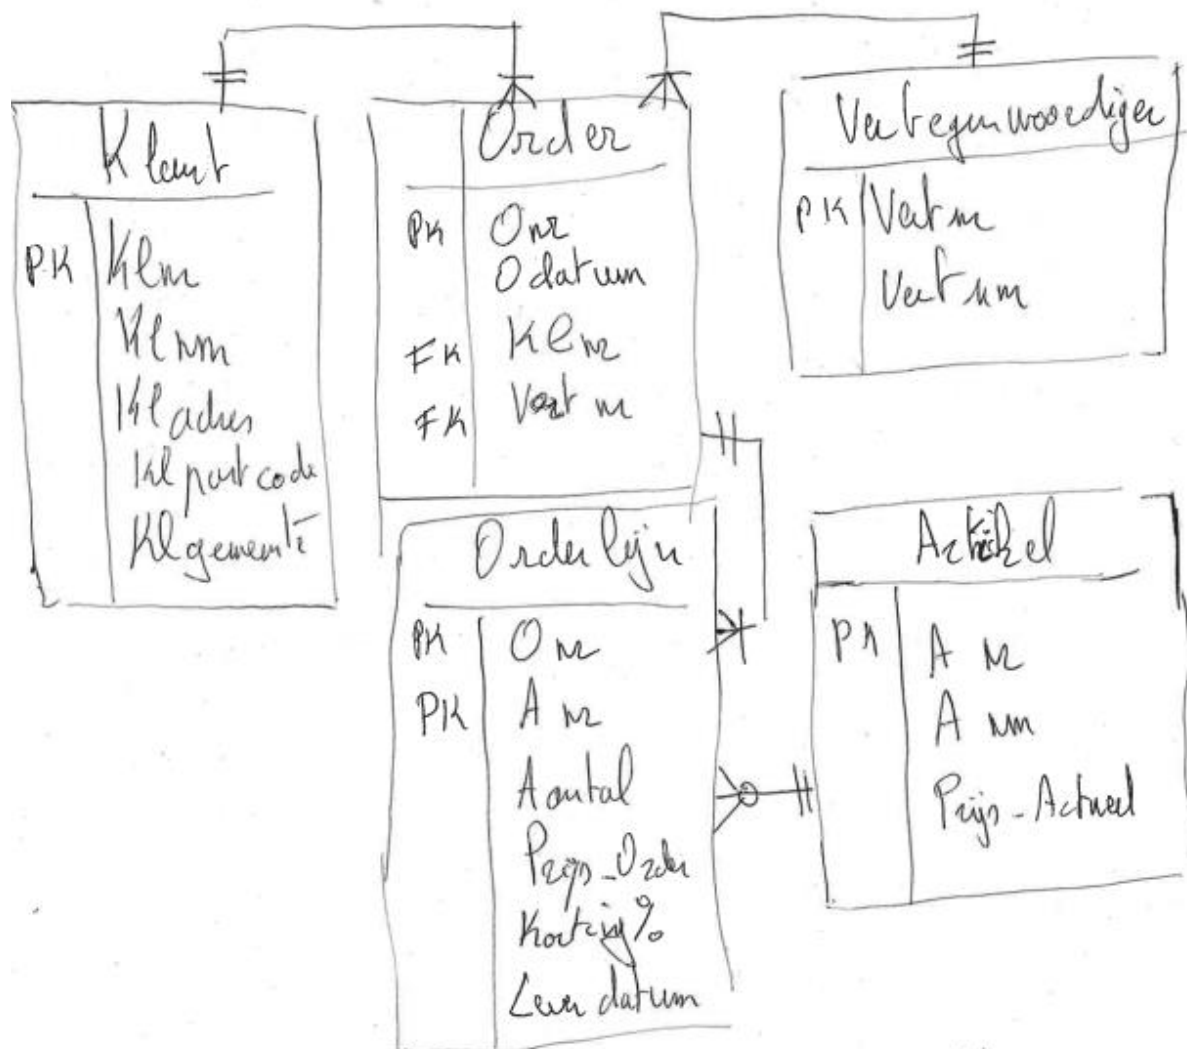 Klant
PK Klnr
Klnm
Kladres
Klpostcode
Klgemeente
Order
PK Onr
Odatum
FK Klnr
FK Vertnr
Vertegenwoordiger
PK Vertnr
Vertnm
Orderlijn
PK Onr
PK Anr
Aantal
Prijs_Order
Korting%
Leverdatum
Artikel
PK Anr
Anm
Prijs_Actueel